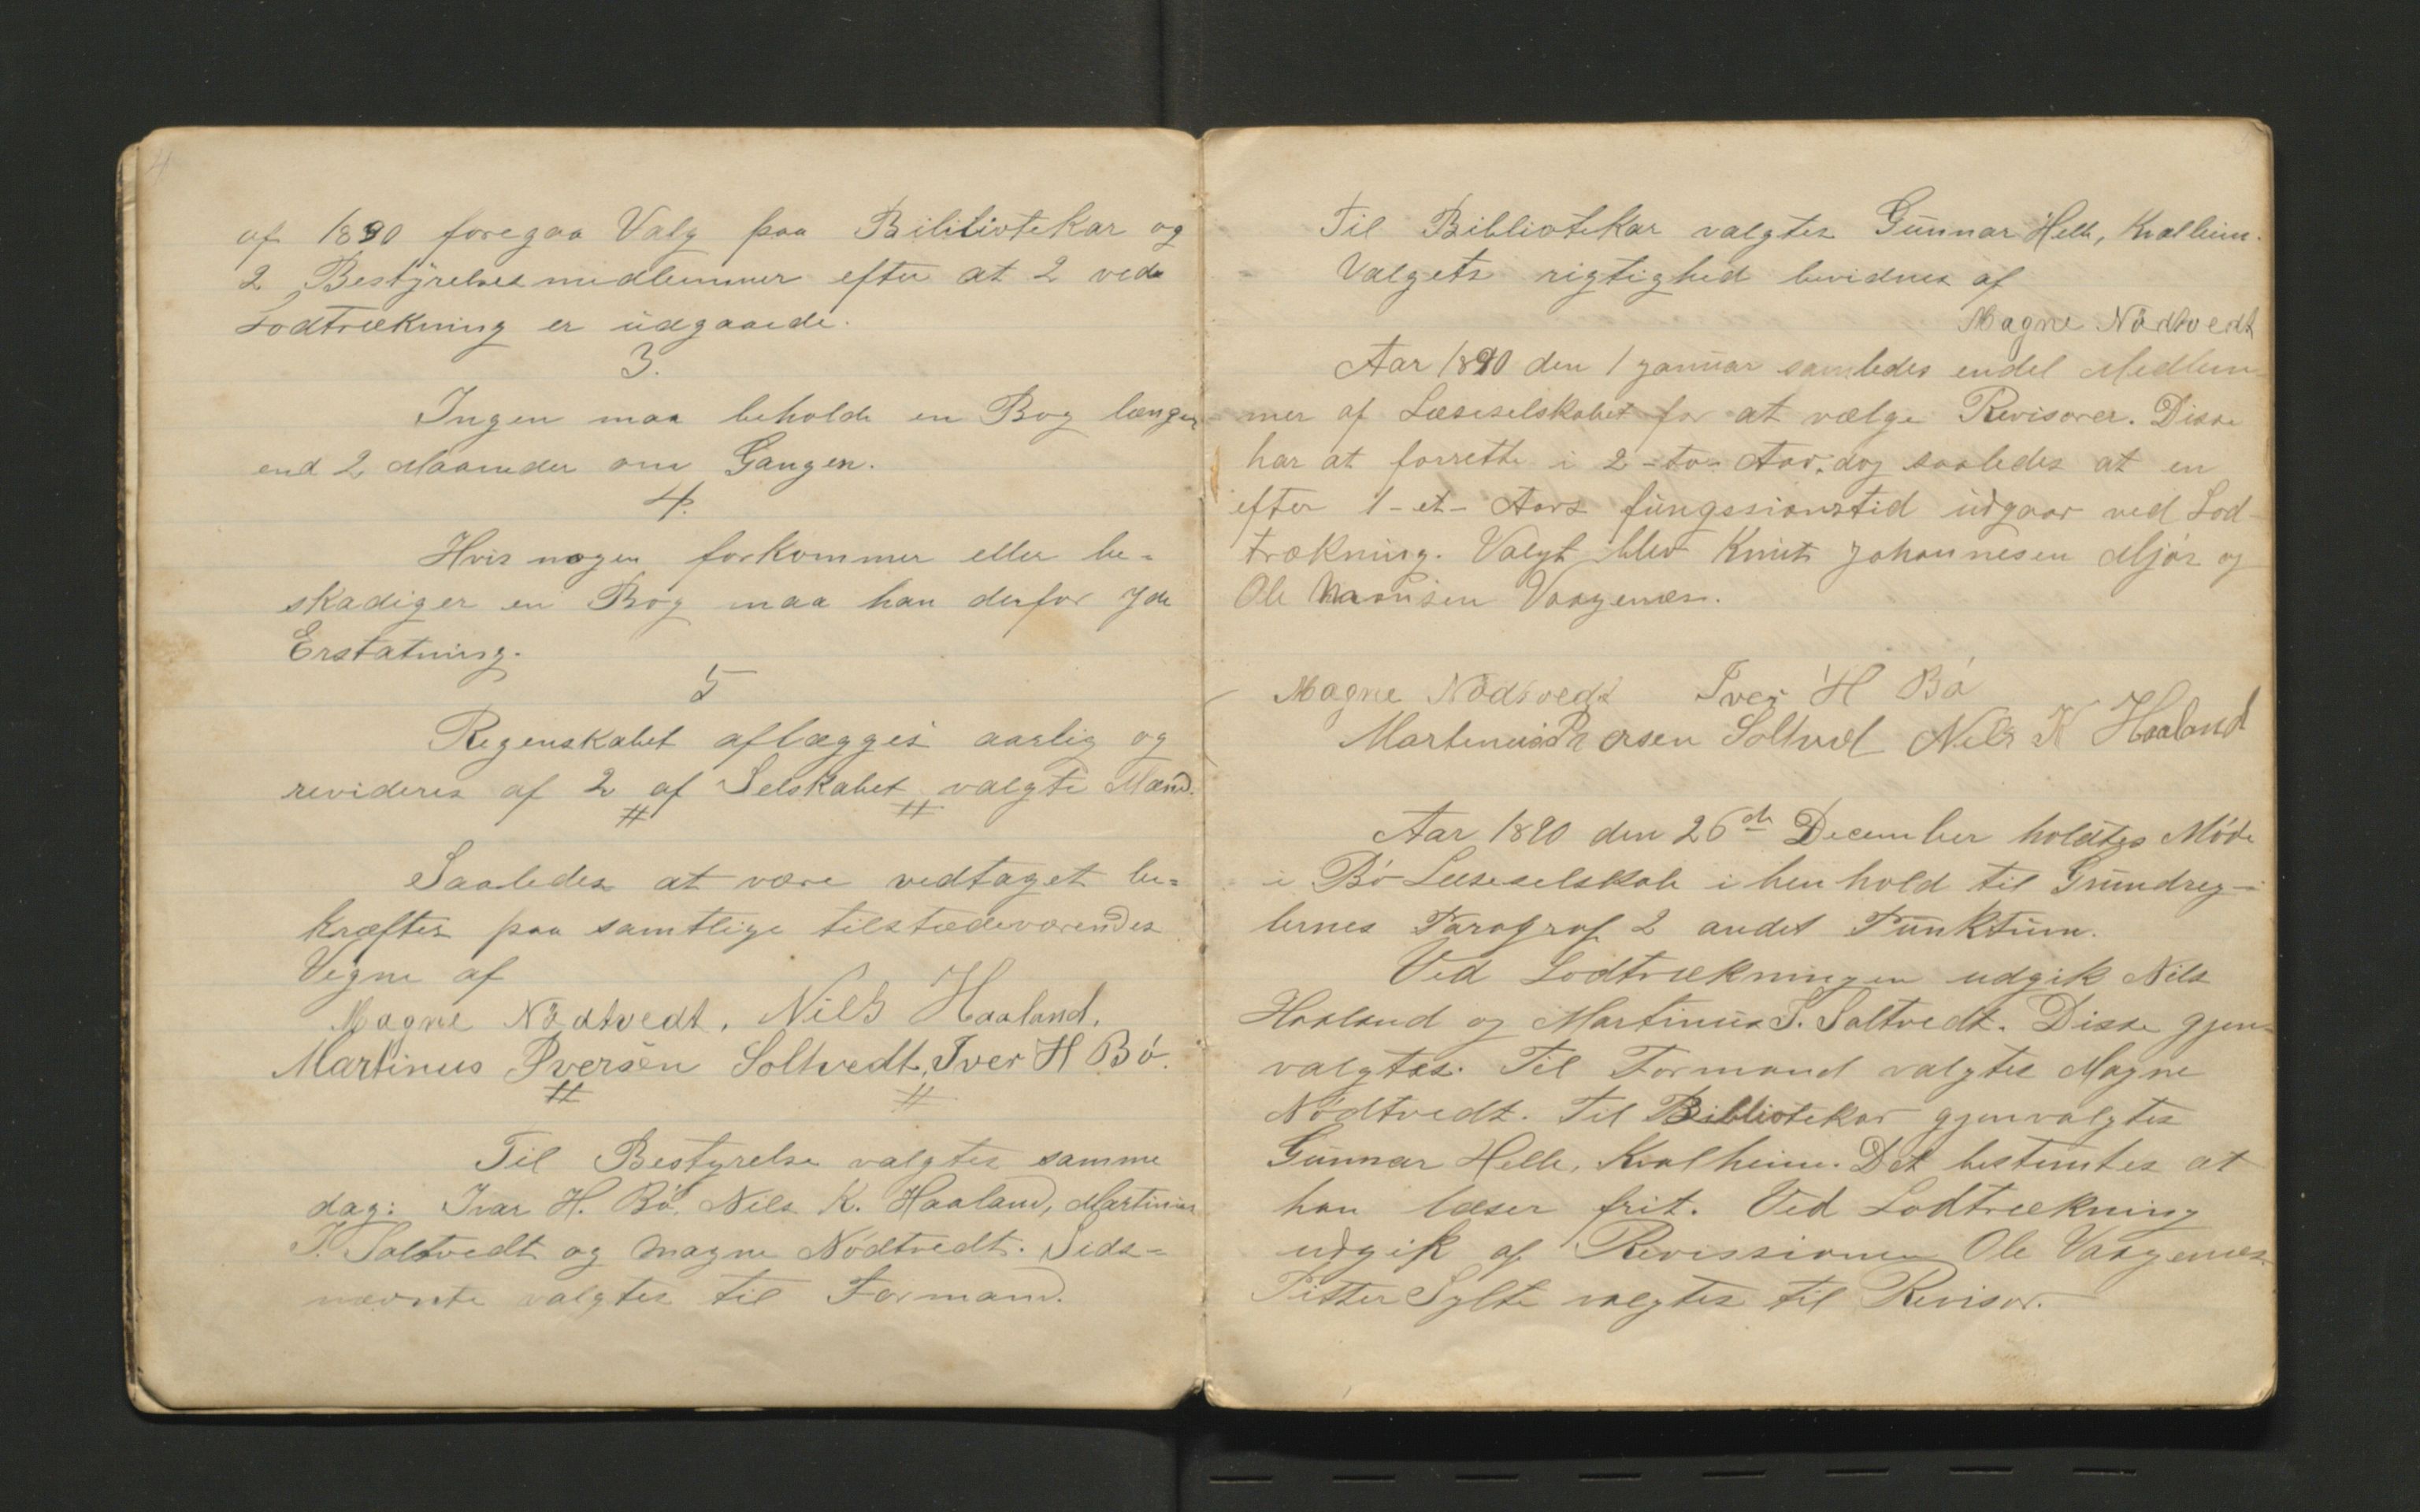 4
af 1890 foregaa Valg paa Bibliotekar og
2 Bestÿrelsesmedlemmer efter at 2 ved
Lodtrækning er udgaaede.
3.
Ingen maa beholde en Bog længer
end 2 Maaneder om Gangen.
4.
Hvis nogen forkommer eller be=
skadiger en Bog maa han derfor yde
Erstatning.
5
Regenskabet aflægges aarlig og
revideres af 2 af Selskabet valgte Mænd.
Saaledes at være vedtaget be=
kræftes paa samtlige tilstædeværendes
Vegne af
Magne Nödtvedt, Nils Haaland,
Martinus Iversen Soltvedt, Iver H Bö.
Til Bestyrelse valgtes samme
dag: Ivar H. Bö, Nils K. Haaland, Martinus
I. Soltvedt og Magne Nödtvedt. Sidst=
nævnte valgtes til Formand.
Til Bibliotekar valgtes Gunnar Helle, Kvalheim.
Valgets rigtighed bevidnes af
Magne Nödtvedt
Aar 1890 den 1 januar samledes endel Medlem
mer af Læseselskabet for at vælge Revisorer. Disse
har at forrette i 2-to-Aar, dog saaledes at en
efter 1-et-Aars fungssionstid udgaar ved Lod
trækning. Valgt blev Knut Johannesen Mjös og
Ole Monsen Vaagenæs.
Magne Nödtvedt Iver H Bö
Martinus Iversen Soltved Nils K Haaland
Aar 1890 den 26de December holdtes Möde
i Bö Læseselskab i henhold til Grundreg-
lernes Paragraf 2 andet Punktum.
Ved Lodtrækningen udgik Nils
Haaland og Martinus I. Soltvedt. Disse gjen=
valgtes. Til Formand valgtes Magne
Nödtvedt. Til Bibliotekar gjenvalgtes
Gunnar Helle, Kvalheim. Det bestemtes at
han læser frit. Ved Lodtrækning
udgik af Revissionen Ole Vaagenæs.
Petter Sylte valgtes til Revisor.